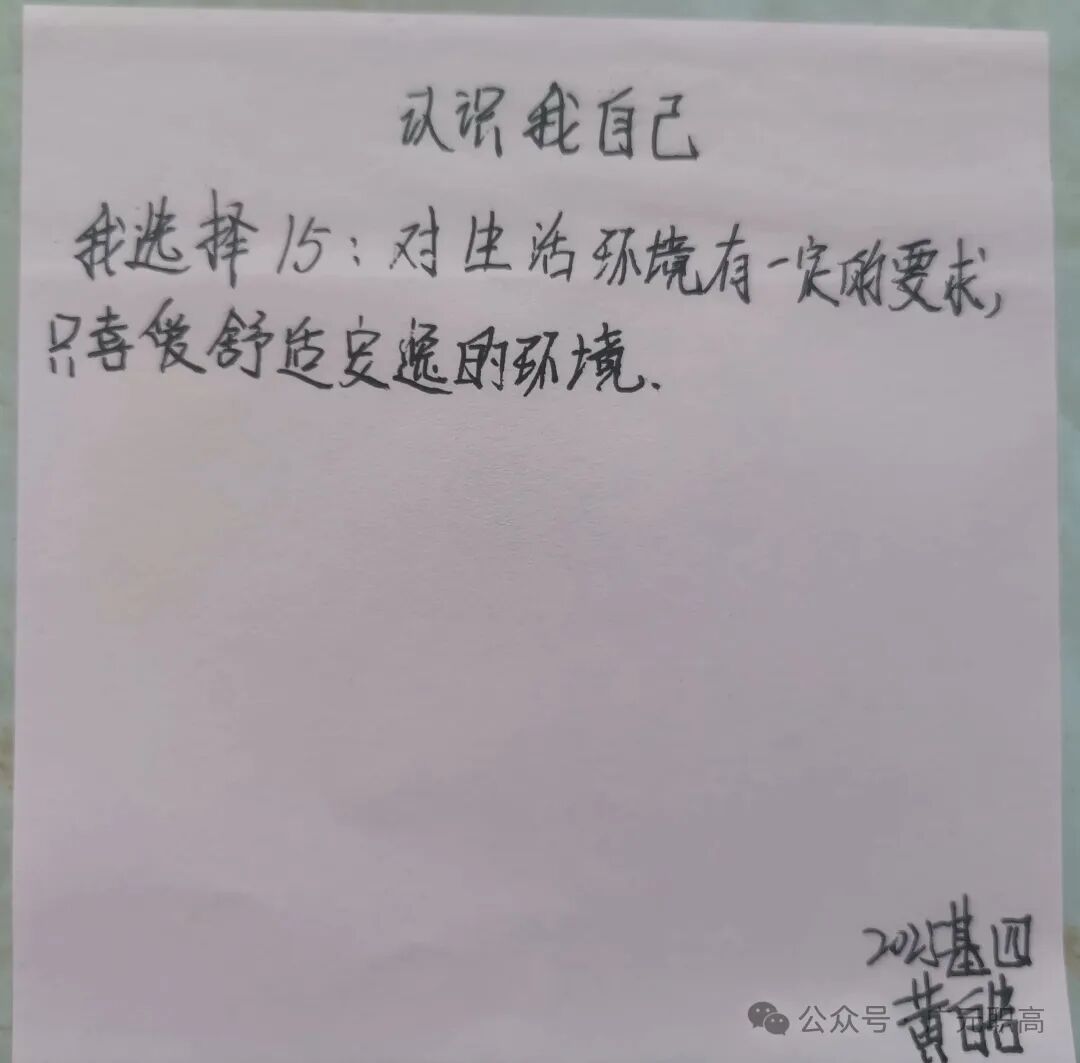 认识我自己
我选择15：对生活环境有一定的要求，
只喜爱舒适安逸的环境.
2025基四
黄皓
公众号 元职高